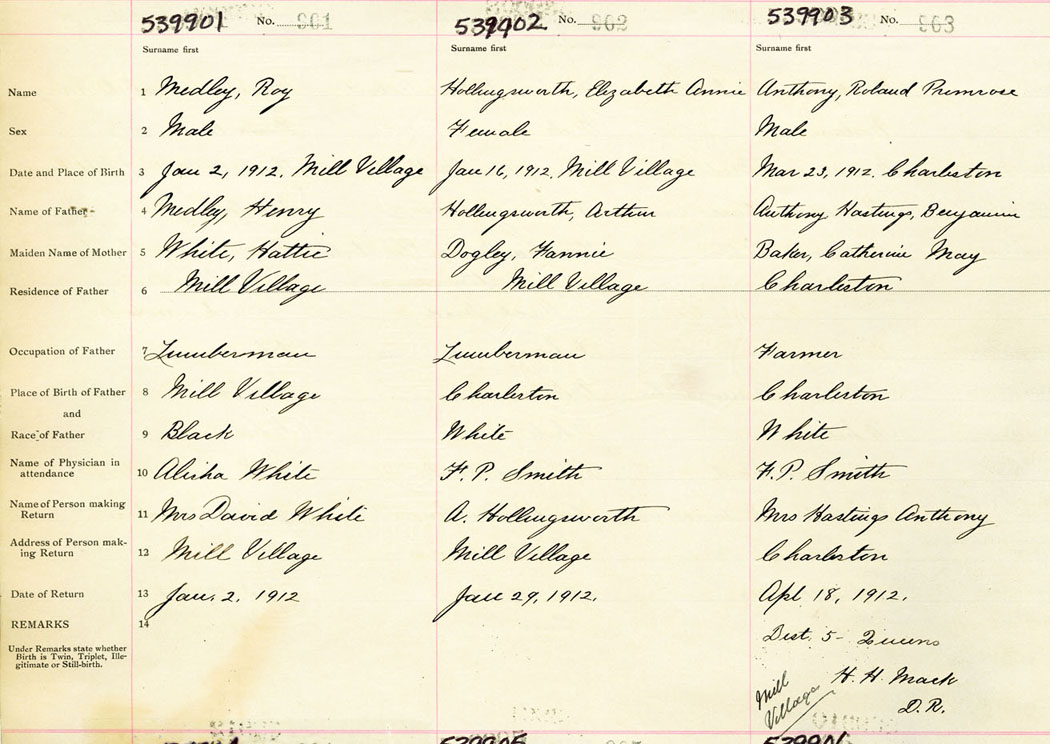 539901 No. 901 539902 No. 902 539903 No. 903
Surname first Surname first Surname first
Name 1 Medley, Roy Hollingsworth, Elizabeth Annie Anthony, Roland Primrose
Sex 2 Male Female Male
Date and Place of Birth 3 Jan 2, 1912. Mill Village Jan 16, 1912. Mill Village Mar 23, 1912. Charleston
Name of Father 4 Medley, Henry Hollingsworth, Arthur Anthony Hastings, Benjamin
Maiden Name of Mother 5 White, Hattie Dogley, Fannie Baker, Catherine May
Residence of Father 6 Mill Village Mill Village Charleston
Occupation of Father 7 Lumberman Lumberman Farmer
Place of Birth of Father 8 Mill Village Charleston Charleston
and
Race of Father 9 Black White White
Name of Physician in
attendance 10 Alisha White F. P. Smith F. P. Smith
Name of Person making
Return 11 Mrs David White A. Hollingsworth Mrs Hastings Anthony
Address of Person mak-
ing Return 12 Mill Village Mill Village Charleston
Date of Return 13 Jan. 2, 1912 Jan 29, 1912. Apl 18, 1912.
REMARKS 14
Under Remarks state whether
Birth is Twin, Triplet, Ille-
gitimate or Still-birth.
Dist. 5 - Queens
H. H. Mack
D. R.
Mill
Village